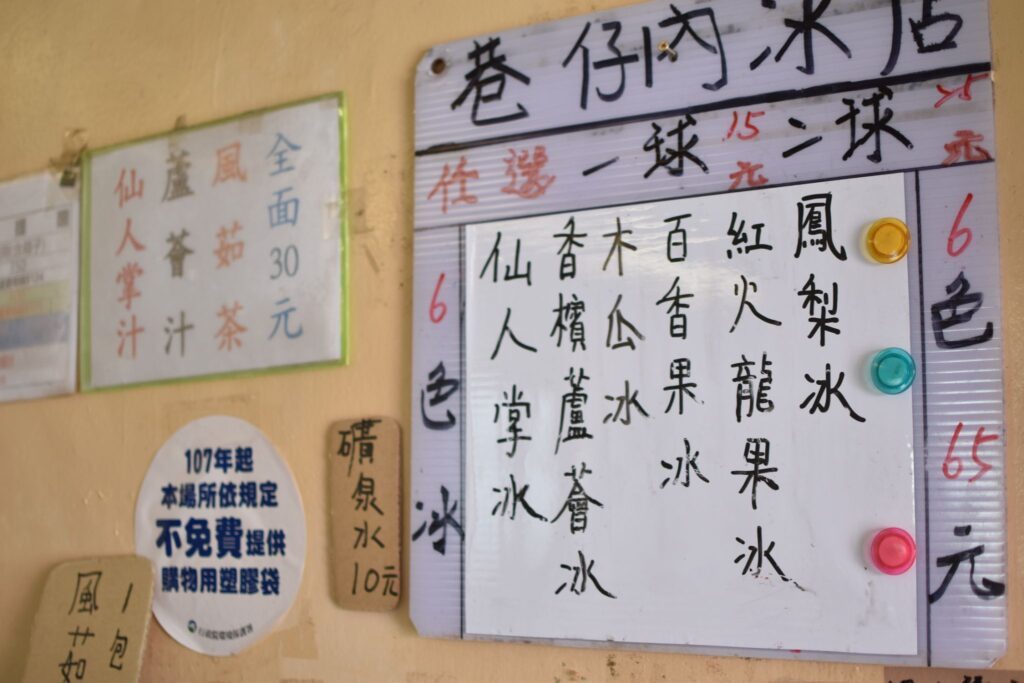 巷仔內冰店
任選 一球 15元 二球 25元
鳳梨冰
紅火龍果冰
百香果冰
木瓜冰
香檳蘆薈冰
仙人掌冰
6色冰
6色65元
全面30元
風茹茶
蘆薈汁
仙人掌汁
礦泉水10元
107年起
本場所依規定
不免費提供
購物用塑膠袋
行政院環境保護署
1包
風茹